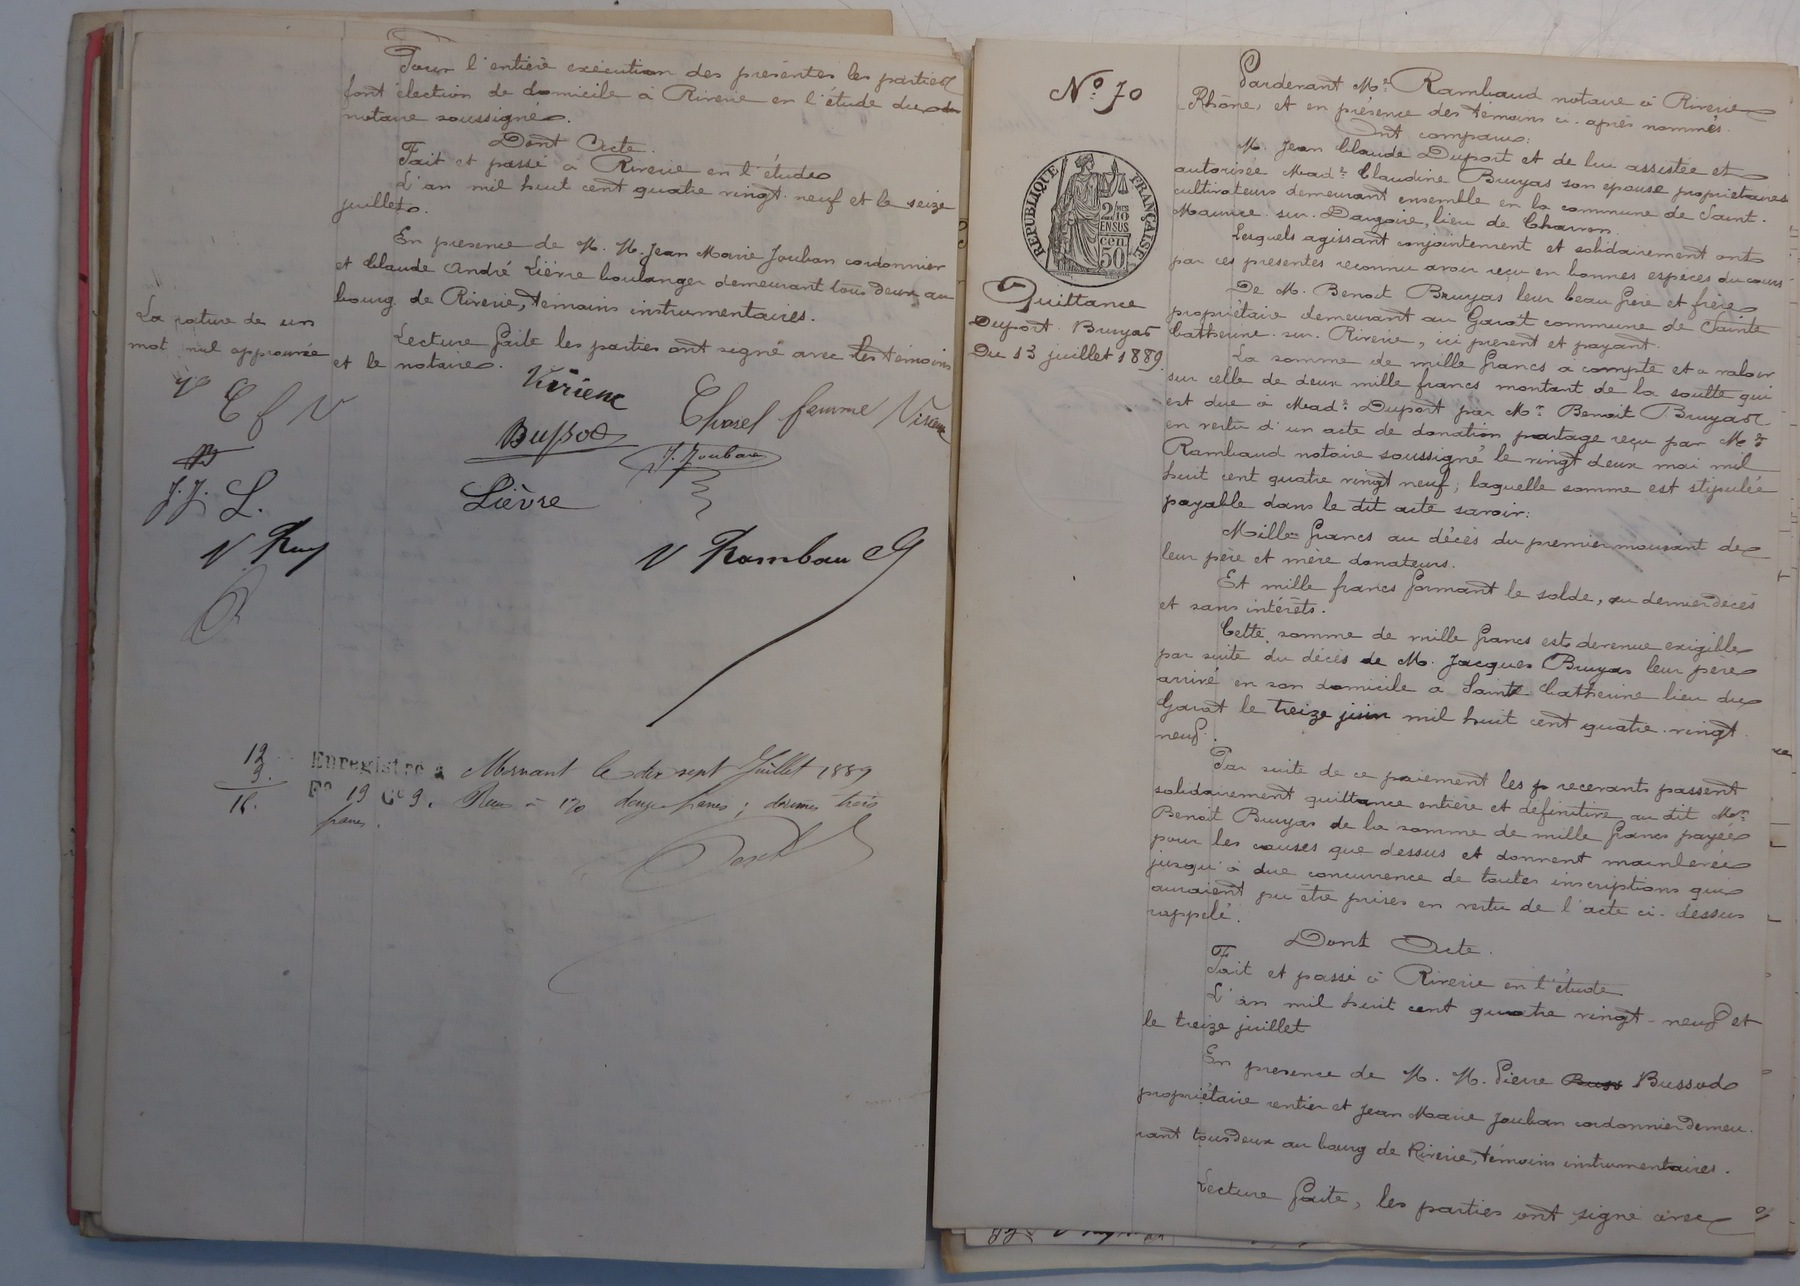 Pour l'entière exécution des présentes les parties
font élection de domicile à Riverie en l'étude du
notaire soussigné.
Dont Acte.
Fait et passé à Riverie en l'étude
L'an mil huit cent quatre vingt-neuf et le seize
juillet.
En présence de M. M. Jean Marie Jouban cordonnier
et Claude André Lièvre boulanger demeurant tous deux au
bourg de Riverie, témoins instrumentaires.
Lecture faite les parties ont signé avec les témoins
et le notaire.
La rature de un
mot nul approuvée
C f V
J. J. L.
V Ray
Virieux
Chazel femme Virieux
Bussod
J. Jouban
Lièvre
V Rambaud
12
3.
15.
Enregistré à Mornant le dix sept Juillet 1889
Fo 19 Co 9. Reçu à douze francs ; décimes trois
francs.
No 70
REPUBLIQUE FRANÇAISE
2/10
EN SUS
50 cen
Quittance
Duport-Bruyas
Du 13 juillet 1889
Pardevant Me Rambaud notaire à Riverie
Rhône, et en présence des témoins ci-après nommés.
Ont comparu:
M. Jean Claude Duport et de lui assistée et
autorisée Made Claudine Bruyas son épouse propriétaires
cultivateurs demeurant ensemble en la commune de Saint-
Maurice-sur-Dargoire, lieu de Charron.
Lesquels agissant conjointement et solidairement ont
par ces présentes reconnu avoir reçu en bonnes espèces du cours
De M. Benoit Bruyas leur beau frère et frère
propriétaire demeurant au Garat commune de Sainte
Catherine-sur-Riverie, ici présent et payant.
La somme de mille francs a compte et a valoir
sur celle de deux mille francs montant de la soulte qui
est due à Made Duport par Mr Benoit Bruyas
en vertu d'un acte de donation partage reçu par Me
Rambaud notaire soussigné le vingt deux mai mil
huit cent quatre vingt neuf; laquelle somme est stipulée
payable dans le dit acte savoir:
Mille francs au décès du premier mourant de
leur père et mère donateurs.
Et mille francs formant le solde, au dernier décès
et sans intérêts.
Cette somme de mille francs est devenue exigible
par suite du décès de M. Jacques Bruyas leur père
arrivé en son domicile à Sainte Catherine lieu du
Garat le treize juin mil huit cent quatre-vingt
neuf.
Par suite de ce paiement les p recevants passent
solidairement quittance entière et définitive au dit Mr
Benoit Bruyas de la somme de mille francs payée
pour les causes que dessus et donnent mainlevée
jusqu'à due concurrence de toutes inscriptions qui
auraient pu être prises en vertu de l'acte ci-dessus
rappelé.
Dont Acte.
Fait et passé à Riverie en l'étude
L'an mil huit cent quatre vingt-neuf et
le treize juillet
En présence de M. M. Pierre Buss Bussod
propriétaire rentier et Jean Marie Jouban cordonnier demeu-
rant tous deux au bourg de Riverie, témoins instrumentaires.
Lecture faite, les parties ont signé avec